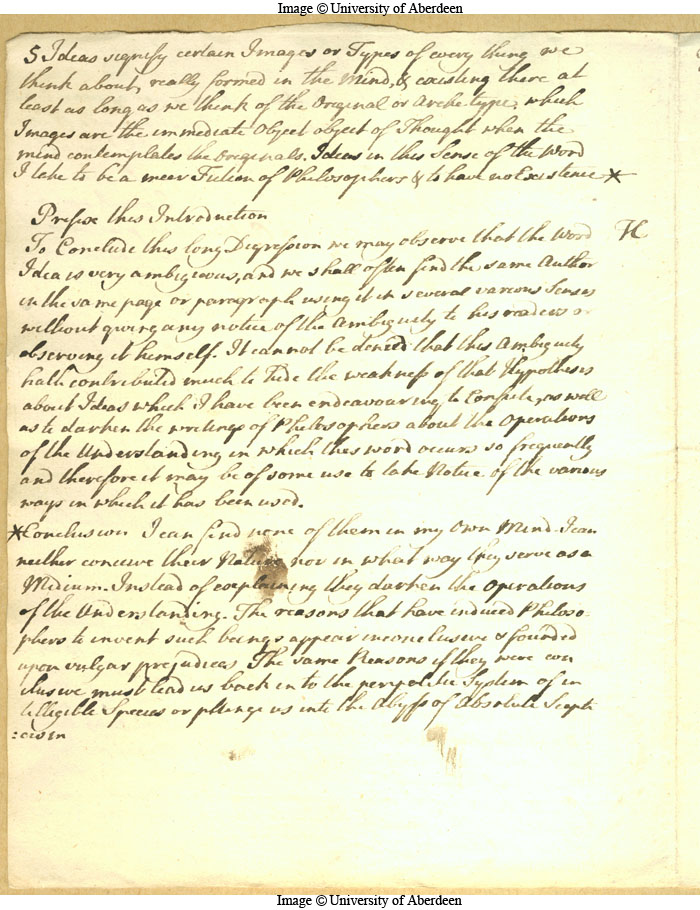 Image © University of Aberdeen
5 Ideas signify certain Images or Types of every thing we
think about, really formed in the Mind, & existing there at
least as long as we think of the Original or Arche-type, which
Images are the immediate Object object of Thought when the
mind contemplates the Originals. Ideas in this Sense of the Word
I take to be a meer Fiction of Philosophers & to have no Existence *
Prefixe this Introduction
To Conclude this long Digression we may observe that the Word H
Idea is very ambigueous, and we shall often find the same Author
in the same page or paragraph using it in several various Senses
without giving any notice of the Ambiguity to his readers or
observing it himself. It cannot be denied that this Ambiguity
hath contributed much to hide the weakness of that Hypothesis
about Ideas which I have been endeavouring to Confute, as well
as to darken the writings of Philosophers about the Operations
of the Understanding in which this word occurs so frequently
and therefore it may be of some use to take Notice of the various
ways in which it has been used.
*Conclusion I can find none of them in my Own Mind. I can
neither conceive their Nature nor in what way they serve as a
Midium. Instead of explaining they darken the Operations
of the Understanding. The reasons that have induced Philoso-
phers to invent such beings appear inconclusive & founded
upon vulgar prejudices The same Reasons if they were con
clusive must lead us back in to the peripatetic System of in
telligible Species or plunge us into the Abyss of Absolute Scepti
:cism
Image © University of Aberdeen